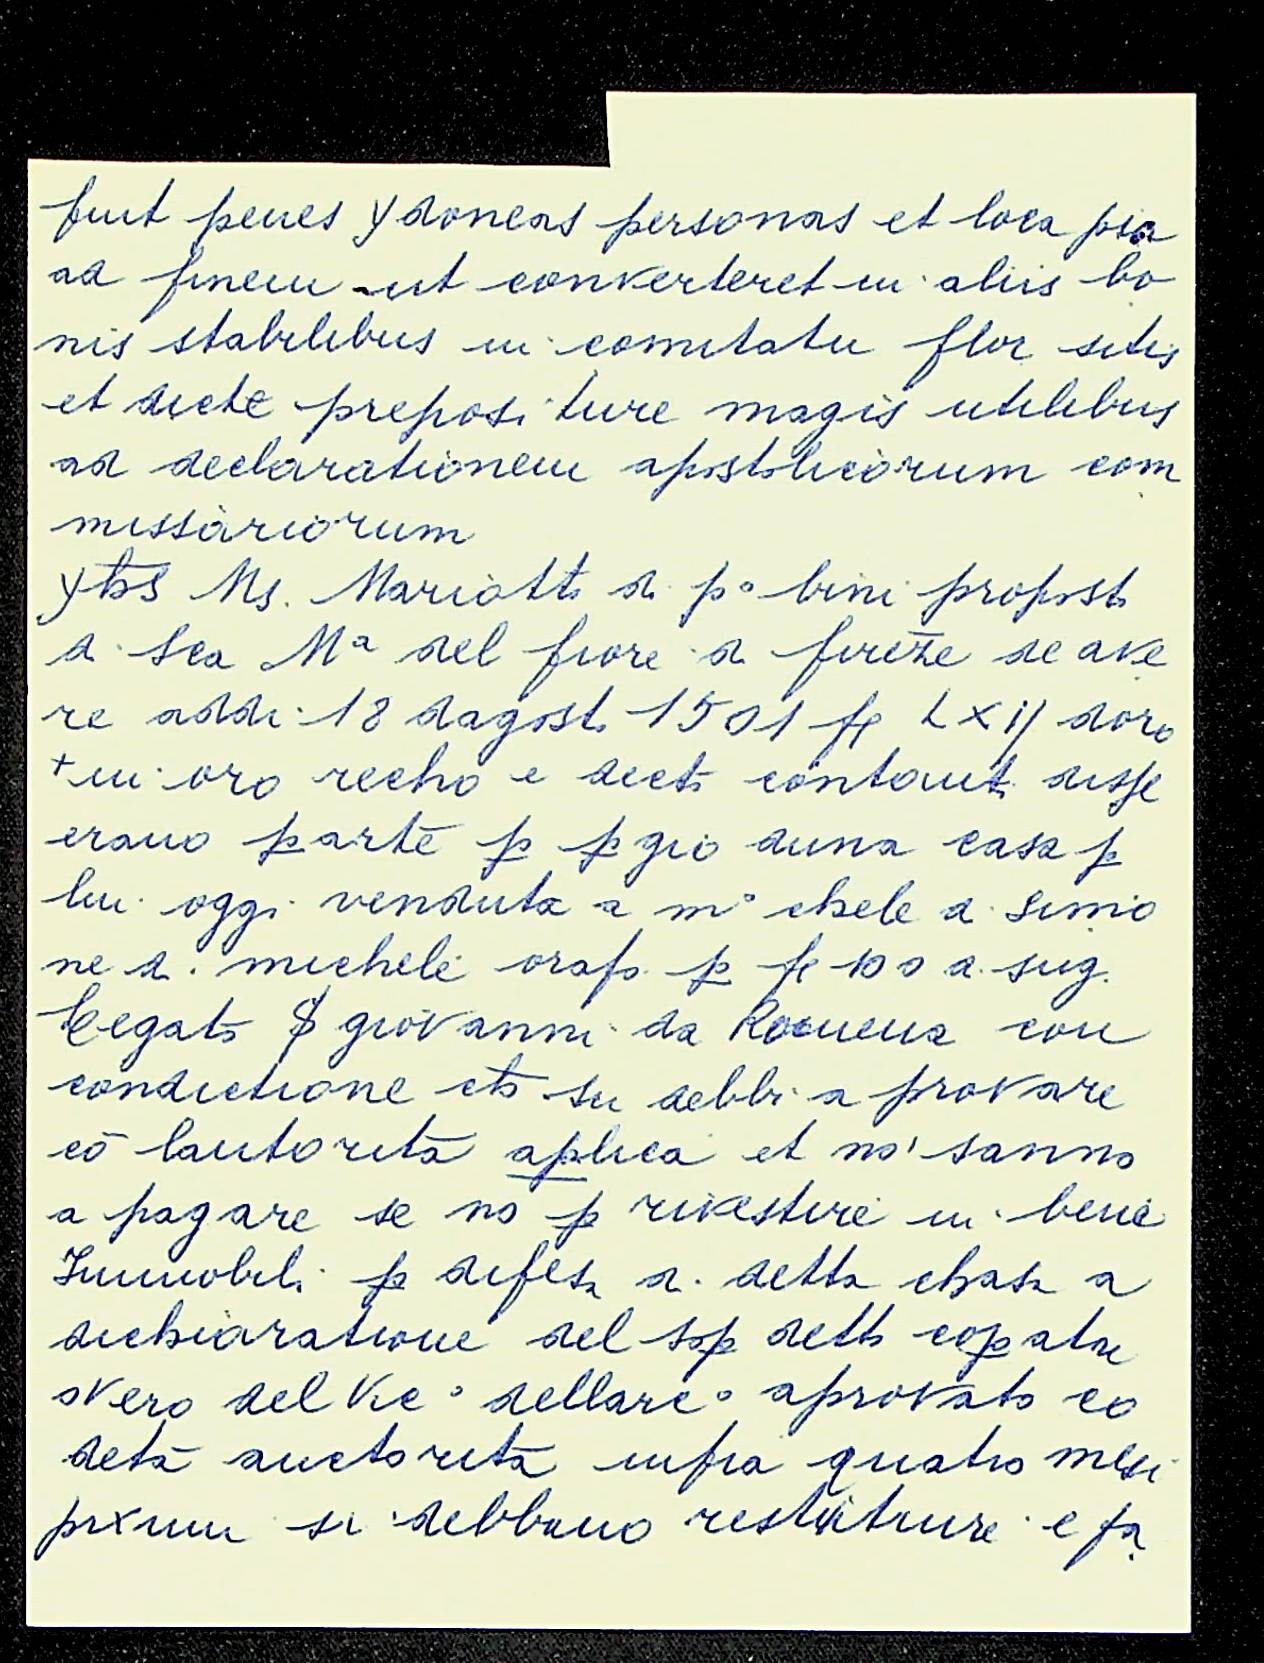 fuit penes ydoneas personas et loca pia
ad finem ut converteret in aliis bo
nis stabilibus in comitatu flor sitis
et dicte prepositure magis utilibus
ad declarationem apostolicorum com
missariorum
yhs Ms. Mariotto di p° bini proposto
di Sca Mª del fiore di firēze de ave
re addi 18 dagosto 1501 fl LXIJ doro
+ in oro recho e decto contanti disse
erano parte p pgio duna casa p
lui oggi venduta a m° chele di simo
ne di michele orafo p fl 100 di sug.
legato S giovanni da Romena con
condictione che su debbi a provare
cō lautorità aplica et no' sanno
a pagare se no p rivestire in beni
Immobili p difesa di detta chasa a
dichiaratione del sop detto copatre
overo del Vic° dellarc° aprovato co
detā auctorità infra quatro mesi
pxum si debbano restituire e fa